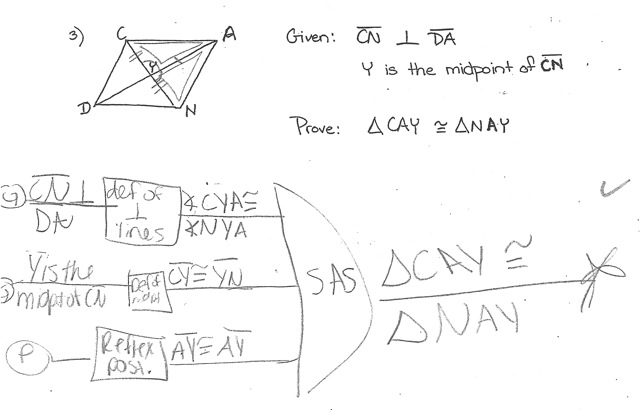 3)
C
A
Y
D
N
Given: CN ⊥ DA
Y is the midpoint of CN
Prove: △CAY ≅ △NAY
G
CN ⊥
DA
def of
⊥
lines
∡CYA ≅
∡NYA
Y is the
midpt of CN
Def of
midpt
CY ≅ YN
P
Reflex
post.
AY ≅ AY
SAS
△CAY ≅
△NAY